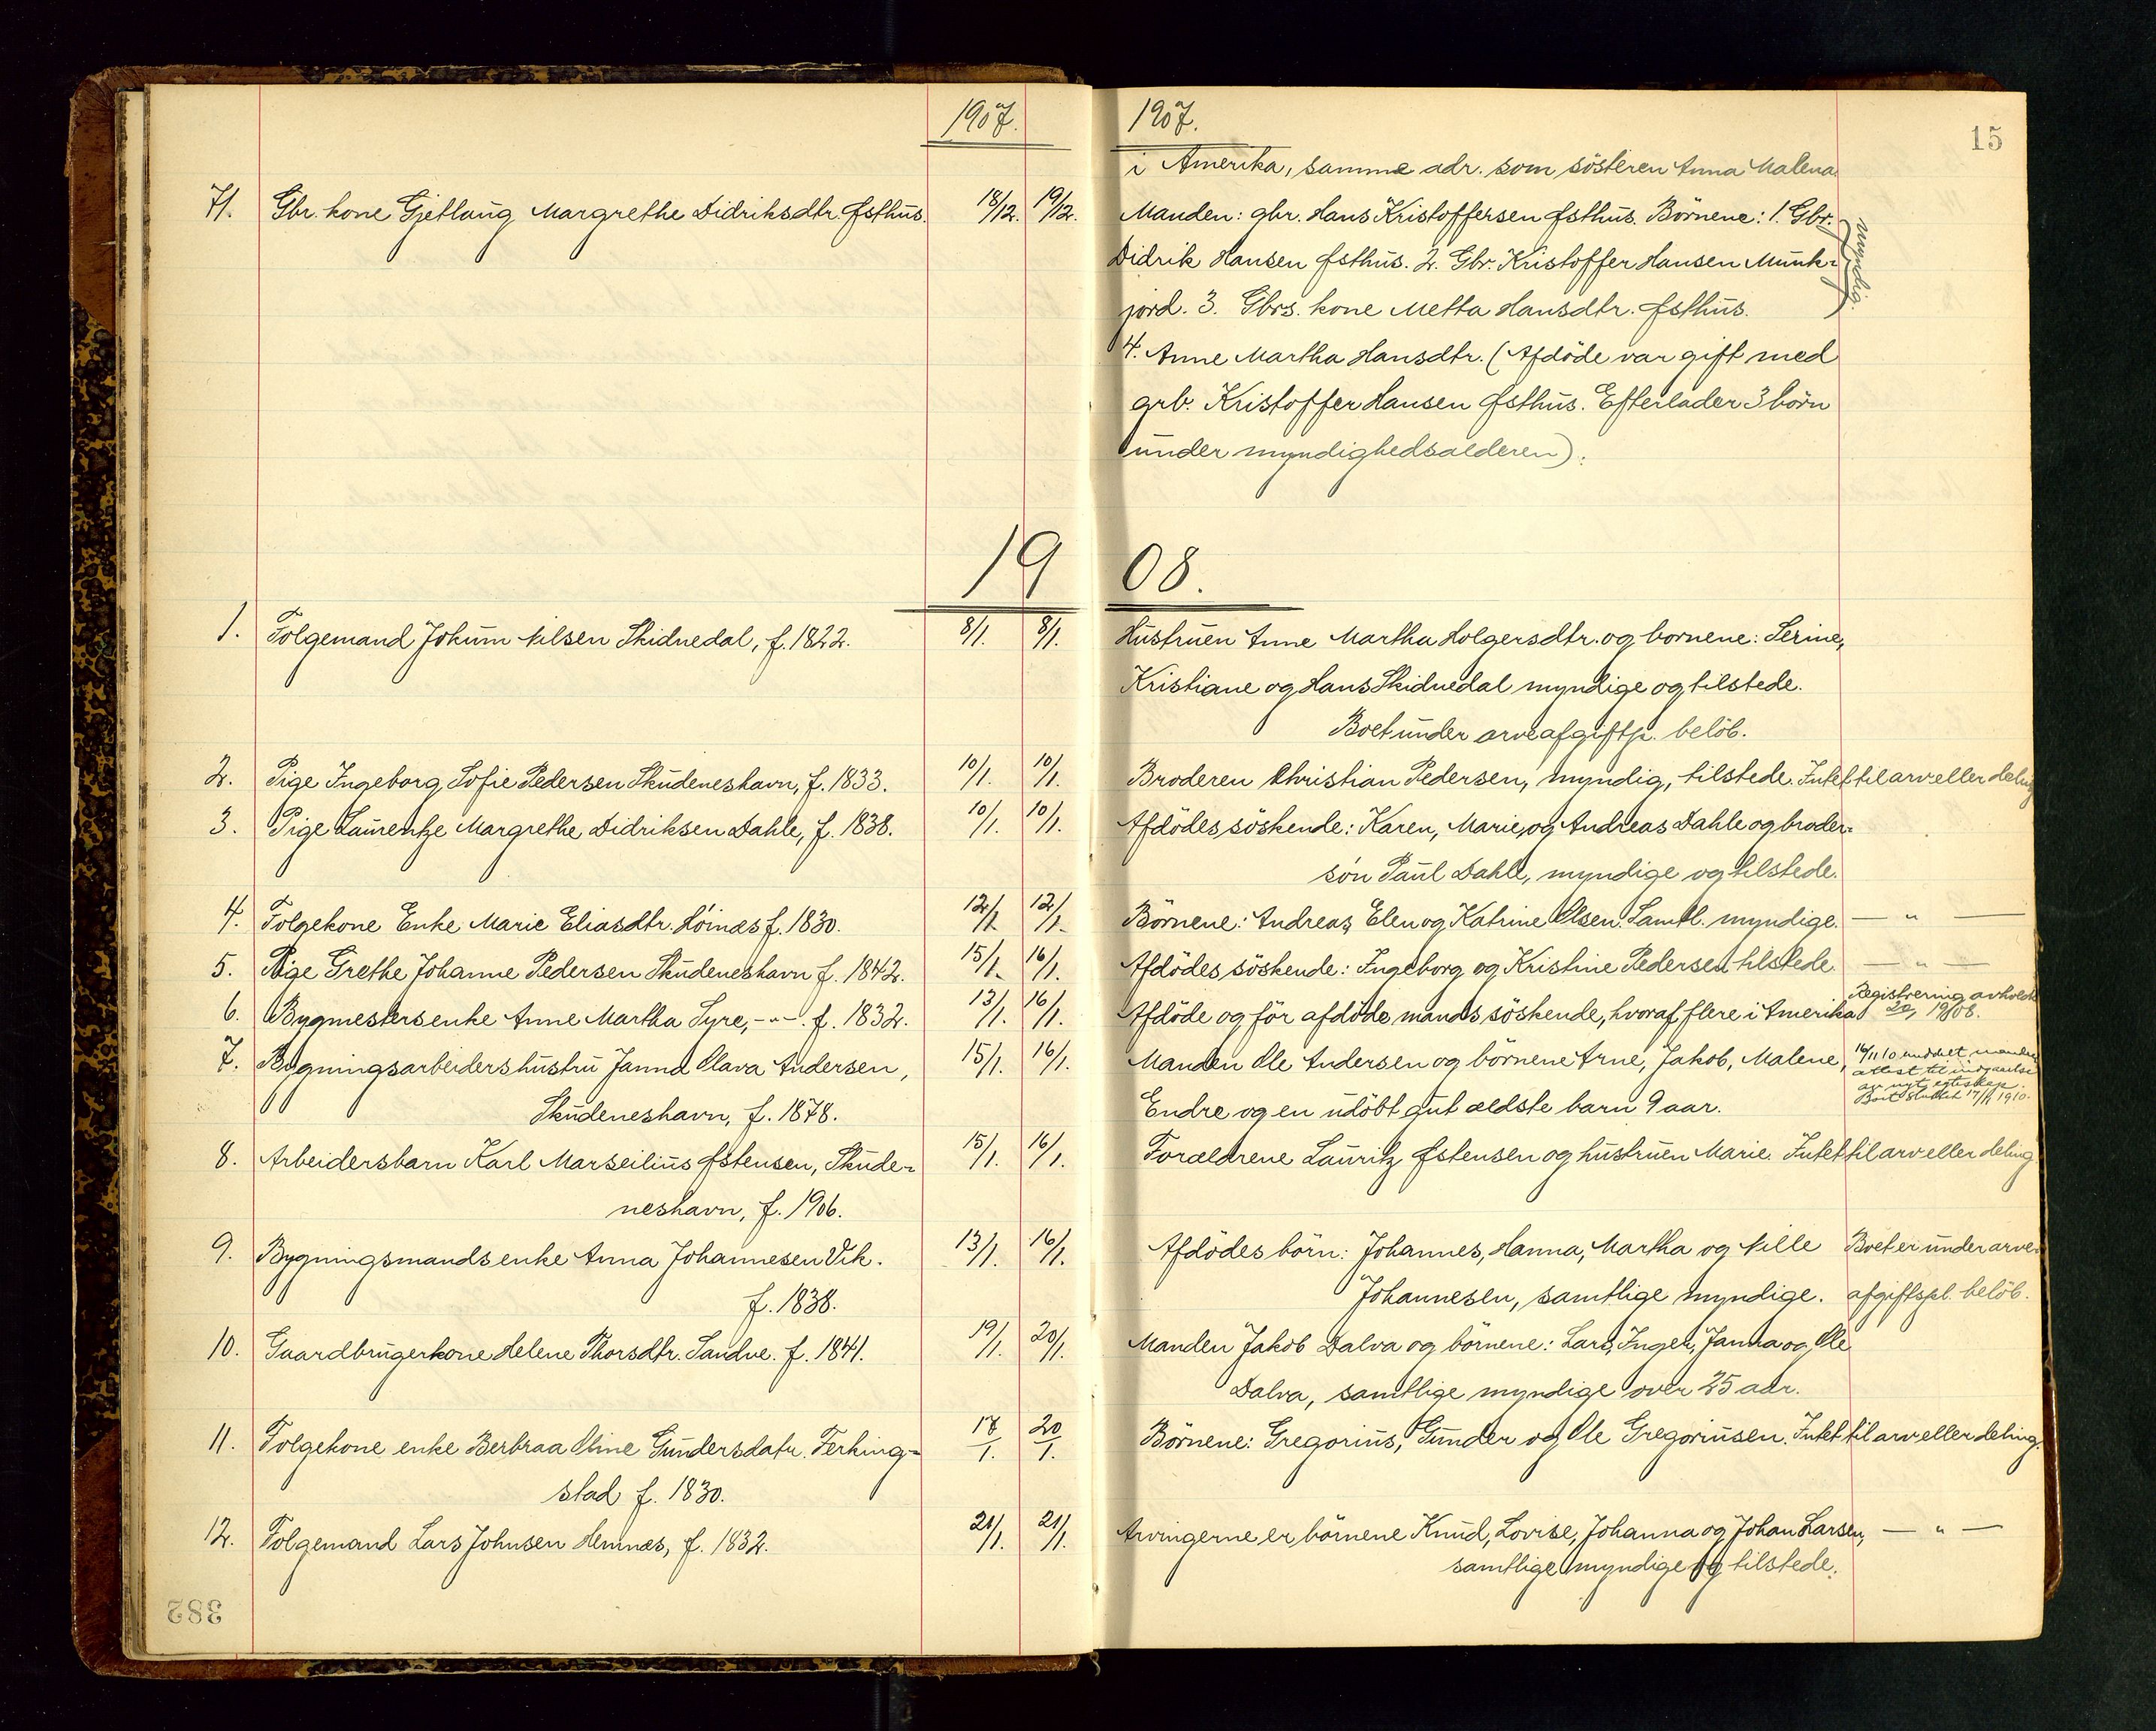 1907.
71. Gbr. kone Gjetlaug Margrethe Didriksdtr. Østhus. 18/12. 19/12.
19
1. Folgemand Jokum Nilsen Skidnedal, f. 1822. 8/1. 8/1.
2. Pige Ingeborg Sofie Pedersen Skudeneshavn, f. 1833. 10/1. 10/1.
3. Pige Laurentze Margrethe Didriksen Dahle, f. 1838. 10/1. 10/1.
4. Folgekone Enke Marie Eliasdtr. Høinæs f. 1830. 12/1. 12/1.
5. Pige Grethe Johanne Pedersen Skudeneshavn f. 1842. 15/1. 16/1.
6. Bygmestersenke Anne Martha Syre, -"-. f. 1832. 13/1. 16/1.
7. Bygningsarbeidershustru Janna Olava Andersen, 15/1. 16/1.
Skudeneshavn, f. 1878.
8. Arbeidersbarn Karl Marseilius Østensen, Skude- 15/1. 16/1.
neshavn, f. 1906.
9. Bygningsmandsenke Anna Johannesen Vik. 13/1. 16/1.
f. 1838.
10. Gaardbrugerkone Helene Thorsdtr. Sandve. f. 1841. 19/1. 20/1.
11. Folgekone enke Berbraa Oline Gundersdatr. Ferking- 17/1. 20/1.
stad f. 1830.
12. Folgemand Lars Johnsen Hemnes, f. 1832. 21/1. 21/1.
382
1907.
15
i Amerika, samme adr. som søsteren Anna Malena
Manden: gbr. Hans Kristoffersen Østhus. Börnene: 1. Gbr.
Didrik Hansen Østhus. 2. Gbr. Kristoffer Hansen Munk-
jord. 3. Gbrs. kone Metta Hansdtr. Østhus.
myndig.
4. Anne Martha Hansdtr. (Afdöde var gift med
grb. Kristoffer Hansen Østhus. Efterlader 3 börn
under myndighedsalderen).
08.
Hustruen Anne Martha Holgersdtr. og bornene: Serine,
Kristiane og Hans Skidnedal myndige og tilstede.
Boet under arveafgiftp. belöb.
Broderen Christian Pedersen, myndig, tilstede. Intet til arv eller deling
Afdödes söskende: Karen, Marie, og Andreas Dahle og broder-
sön Paul Dahle, myndige og tilstede.
Börnene: Andreas, Elen og Katrine Olsen. Samtl. myndige. — " —
Afdödes söskende: Ingeborg og Kristine Pedersen tilstede. — " —
Afdöde og för afdöde mands söskende, hvoraf flere i Amerika Registrering avholdt
1908.
Manden Ole Andersen og börnene Arne, Jakob, Malene, 16/11 10 uddelt manden
attest til indgaaelse
av nyt egteskap.
Endre og en udöbt gut ældste barn 9 aar. Boet sluttet 17/11 1910.
Forældrene Lauritz Østensen og hustruen Marie. Intet til arv eller deling
Afdödes börn: Johannes, Hanna, Martha og Nille Boet er under arve-
Johannesen, samtlige myndige. afgiftspl. belöb.
Manden Jakob Dalva og börnene: Lars, Inger, Janna og Ole
Dalva, samtlige myndige over 25 aar.
Börnene: Gregorius, Gunder og Ole Gregoriusen. Intet til arv eller deling.
Arvingerne er börnene Knud, Lovise, Johanna og Johan Larsen, — " —
samtlige myndige og tilstede.